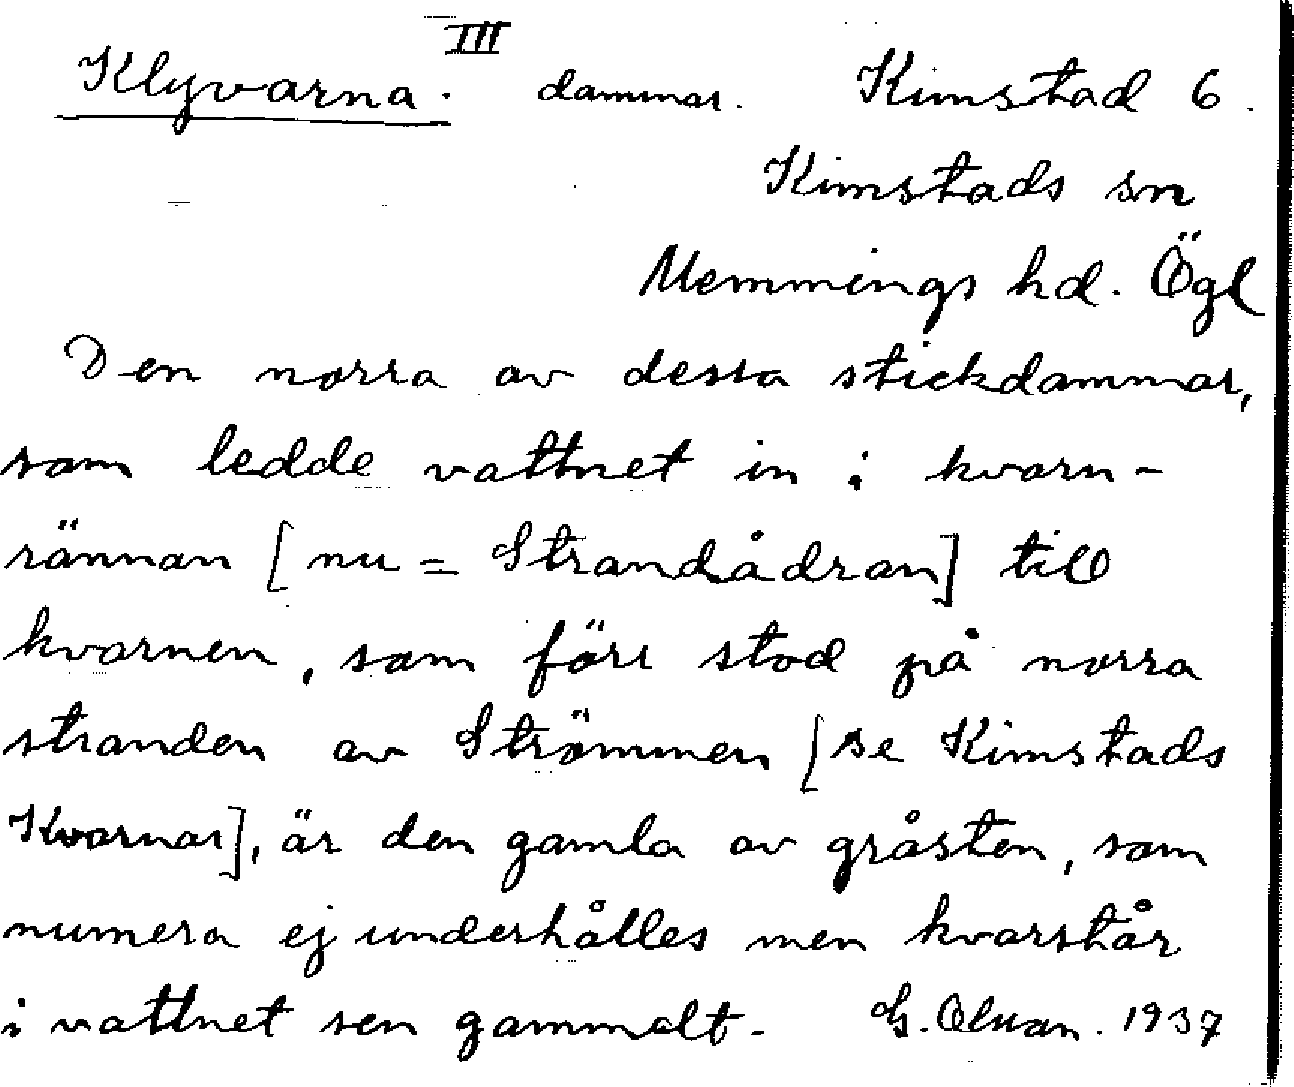 III
Klyvarna. dammar. Kimstad 6.
Kimstads sn
Memmings hd. Ögl
Den norra av dessa stickdammar,
som ledde vattnet in i kvarn-
rännan [nu = Strandådran] till
kvarnen, som förr stod på norra
stranden av Strömmen [se Kimstads
Kvarnar], är den gamla av gråsten, som
numera ej underhålles men kvarstår
i vattnet sen gammalt. G. Olsson. 1937